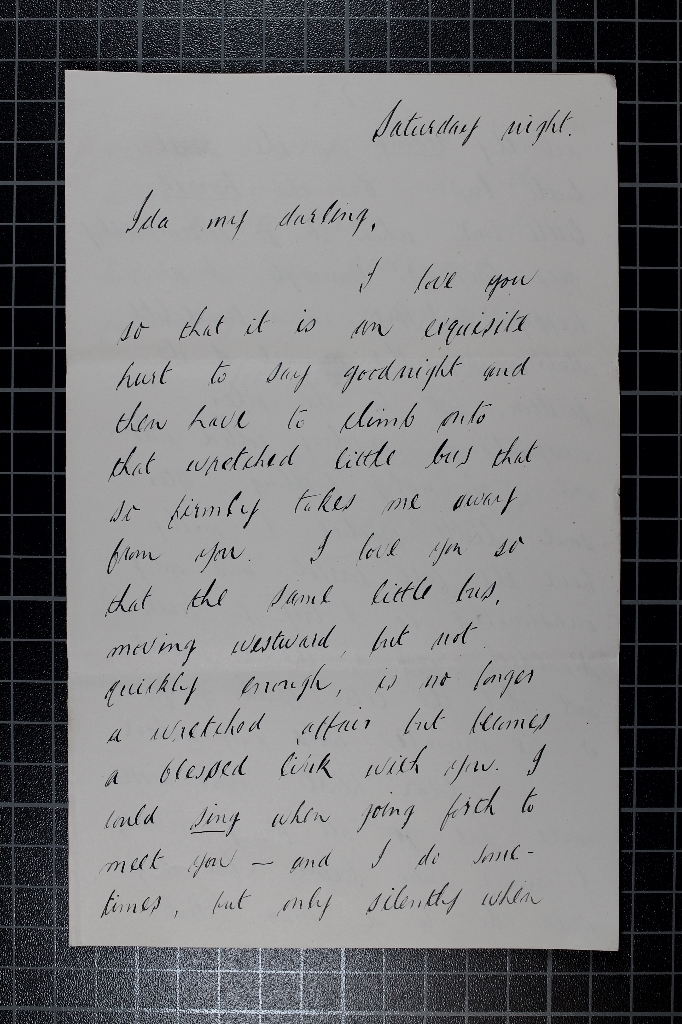 Saturday night.
Ida my darling,
I love you
so that it is an exquisite
hurt to say goodnight and
then have to climb onto
that wretched little bus that
so firmly takes me away
from you. I love you so
that the same little bus,
moving westward, but not
quickly enough, is no longer
a wretched affair but becomes
a blessed link with you. I
could sing when going forth to
meet you — and I do some-
times, but only silently when